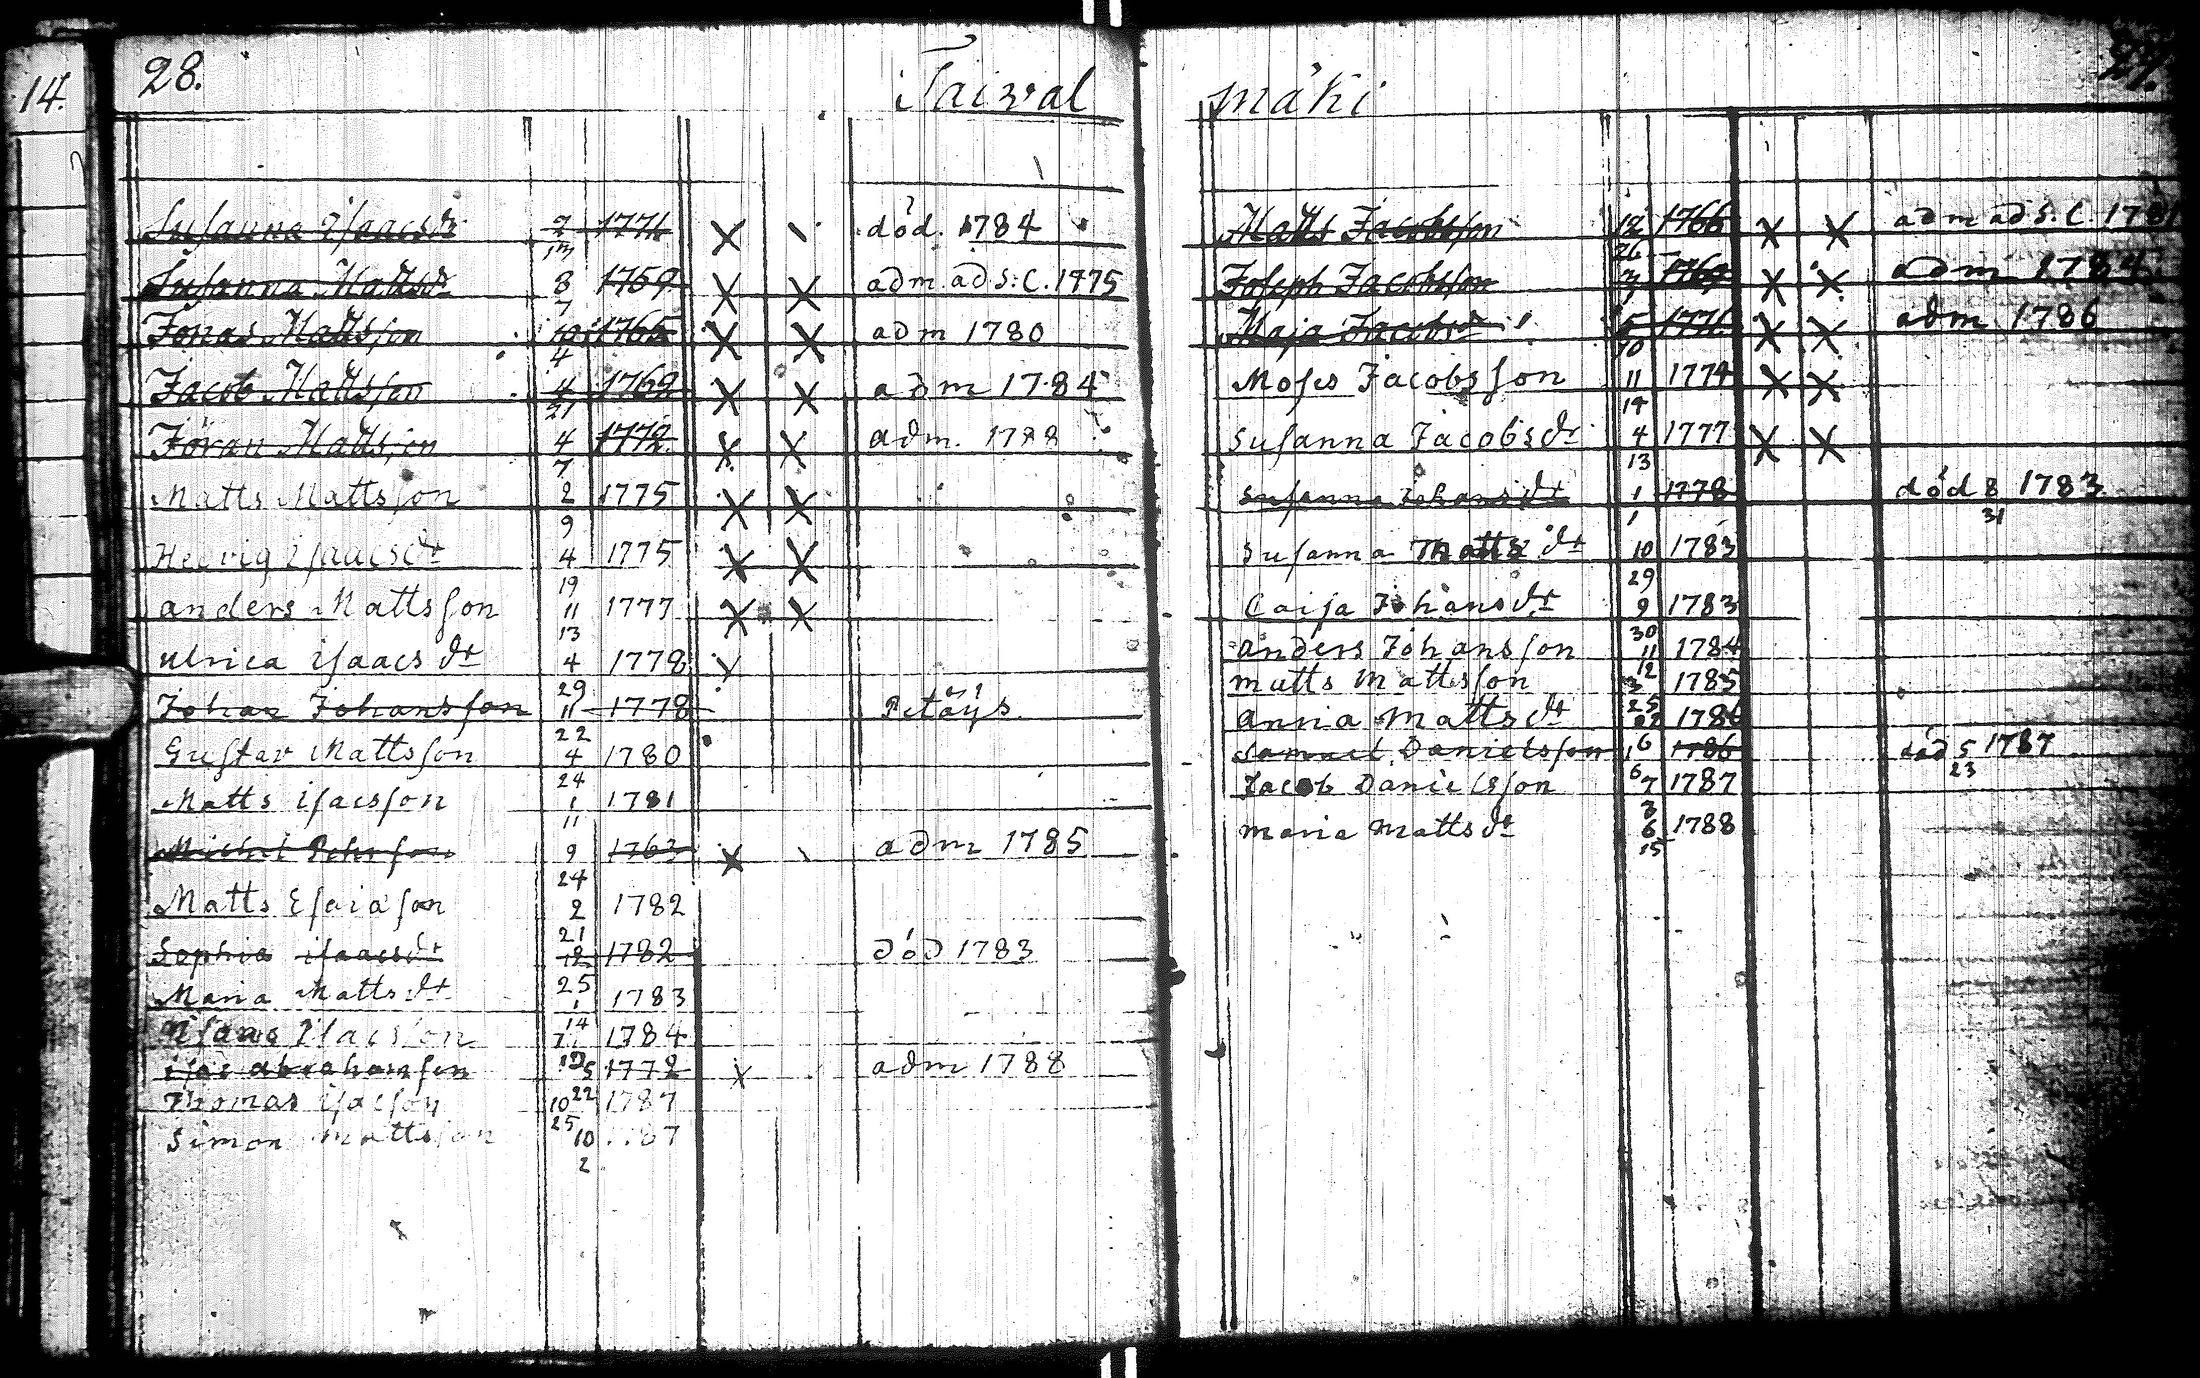 14.
28.
Taival
Susanna Isaacsdr 2/13 1771 X död. 1784
Susanna Mattsdr 8/7 1769 X X adm. ad S:C. 1775
Jonas Mattsson 4 1765 X X adm 1780
Jacob Mattsson 4/21 1769 X X adm 1784
Jöran Mattsson 4/7 1772 X X adm. 1788
Matts Mattsson 2/9 1775 X X
Hedvig Isaacsdr 4/19 1775 X X
anders Mattsson 11/13 1777 X X
ulrica isaacsdr 4/29 1778 X
Johan Johansson 11/22 1778 Petäys
Gustav Mattsson 4/24 1780
Matts isacsson 1/11 1781
Michel Pehrsson 9/24 1763 X adm 1785
Matts Esaiason 2/21 1782
Sophia isaacsdr 12/25 1782 död 1783
Maria Mattsdr 1/14 1783
Isacsson 7 1784
isac abrahamsson 5/22 1772 x adm 1788
Thomas isacson 10/25 1787
Simon mattsson 10/2 1787
mäki
Matts Jacobsson 12/26 1766 X X adm ad S:C. 1781
Joseph Jacobsson 1769 X X adm 1784
Maja Jacobsdr 5/10 1771 X X adm 1786
Moses Jacobsson 11/14 1774 X X
Susanna Jacobsdr 4/13 1777 X X
Susanna Johansdr 1/1 1778 död 8/31 1783
Susanna Mattsdr 10/29 1783
Caisa Johansdr 9/30 1783
anders Johansson 11/12 1784
matts Mattsson 3/25 1785
anna Mattsdr 22/6 1786
Samuel Danielsson 1/6 1786 död 5/23 1787
Jacob Danielsson 7/3 1787
maria mattsdr 6/15 1788